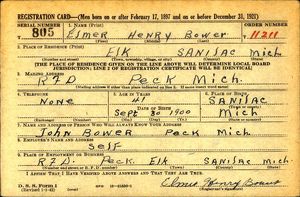 REGISTRATION CARD—(Men born on or after February 17, 1897 and on or before December 31, 1921)
SERIAL NUMBER 1. NAME (Print) ORDER NUMBER
805 ELMER HENRY BOWER 11211
2. PLACE OF RESIDENCE (Print)
ELK SANILAC Mich.
[THE PLACE OF RESIDENCE GIVEN ON THE LINE ABOVE WILL DETERMINE LOCAL BOARD
JURISDICTION; LINE 2 OF REGISTRATION CERTIFICATE WILL BE IDENTICAL]
3. MAILING ADDRESS
RFD Peck Mich.
4. TELEPHONE 5. AGE IN YEARS 6. PLACE OF BIRTH
NONE 41 SANILAC
DATE OF BIRTH
Sept 30 1900 Mich
7. NAME AND ADDRESS OF PERSON WHO WILL ALWAYS KNOW YOUR ADDRESS
JOHN BOWER PECK Mich
8. EMPLOYER'S NAME AND ADDRESS
Self
9. PLACE OF EMPLOYMENT OR BUSINESS
RFD Peck Elk SANILAC Mich
I AFFIRM THAT I HAVE VERIFIED ABOVE ANSWERS AND THAT THEY ARE TRUE.
D. S. S. Form 1
(Revised 1-1-42)
Elmer Henry Bower